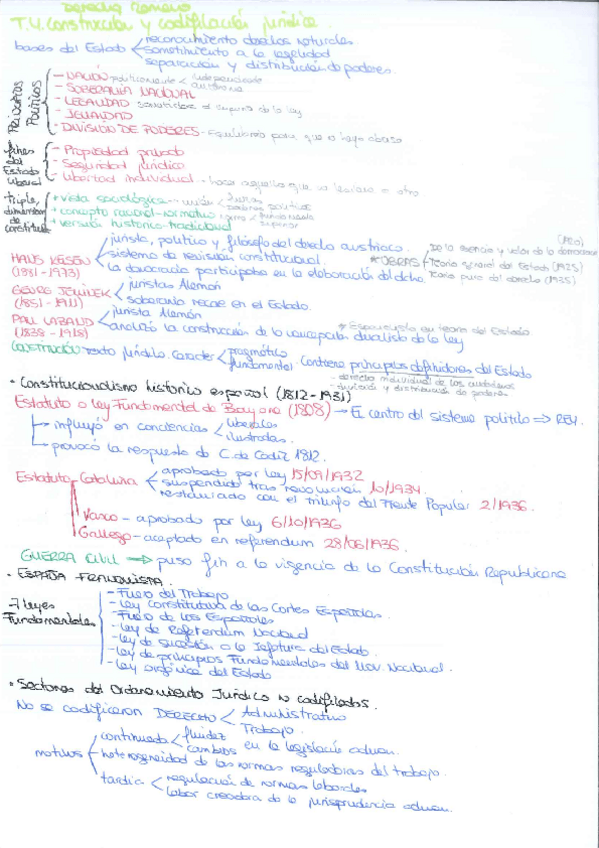 Derecho Romano
T.4. Construcción y codificación jurídica.
bases del Estado
reconocimiento dchos naturales.
sometimiento a la legalidad
separación y distribución de poderes.
PRINCIPIOS POLÍTICOS
- NACIÓN políticamente
independiente
autónoma
- SOBERANÍA NACIONAL
- LEGALIDAD el imperio de la ley
- IGUALDAD
- DIVISIÓN DE PODERES - equilibrio para que no haya abuso
fines del Estado liberal
- Propiedad privada
- Seguridad jurídica
- Libertad individual - hacer aquello que no lesione a otro
triple dimensión de constitución
+ visión sociológica - unión
políticos
+ concepto racional-normativo
fundamental
superior
+ versión histórica-tradicional
HANS KELSEN
(1881 - 1973)
jurista, político y filósofo del derecho austriaco.
sistema de revisión constitucional.
la democracia participaba en la elaboración del dcho.
* OBRAS
De la esencia y valor de la democracia (1920)
Teoría general del Estado (1925)
Teoría pura del derecho (1935)
GEORG JELLINEK
(1851 - 1911)
jurista Alemán
soberanía recae en el Estado.
PAUL LABAND
(1838 - 1918)
jurista Alemán
analizó la construcción de la concepción dualista de la ley
* en teoría del Estado
CONSTITUCIÓN - texto jurídico. Caracter
pragmático
fundamental
. Contiene principios definidores del Estado
- derecho individual de los ciudadanos
- división y distribución de poderes
• Constitucionalismo histórico español (1812 - 1931)
Estatuto o Ley Fundamental de Bayona (1808) → El centro del sistema político ⇒ REY.
→ influyó en conciencias
liberales
ilustradas.
→ provocó la respuesta de C. de Cádiz 1812.
Estatuto Cataluña
aprobado por ley 15/09/1932
suspendido tras revolución 10/1934.
restaurado con el triunfo del Frente Popular 2/1936.
Vasco - aprobado por ley 6/10/1936
Gallego - aceptado en referendum 28/06/1936.
GUERRA CIVIL → puso fin a la vigencia de la Constitución Republicana
• ESPAÑA FRANQUISTA.
7 leyes Fundamentales
- Fuero del Trabajo
- Ley Constitutiva de las Cortes Españolas.
- Fuero de los Españoles
- Ley de Referendum Nacional
- Ley de sucesión a la Jefatura del Estado.
- Ley de principios Fundamentales del Mov. Nacional.
- Ley orgánica del Estado
• Sectores del Ordenamiento Jurídico no codificados.
No se codificaron DERECHO
Administrativo
Trabajo.
motivos
continuada
fluidez
cambios en la legislación admon.
heterogeneidad de las normas reguladoras del trabajo.
tardía
regulación de normas laborales
labor creadora de la jurisprudencia admon.